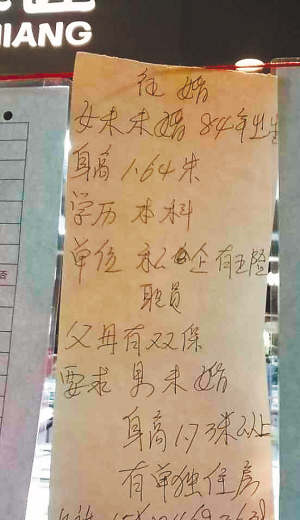 JIANG
征婚
女未未婚 84年出生
身高 1.64米
学历 本科
单位 私企有五险
职员
父母有双保
要求 男未婚
身高1.73米以上
有单独住房
否